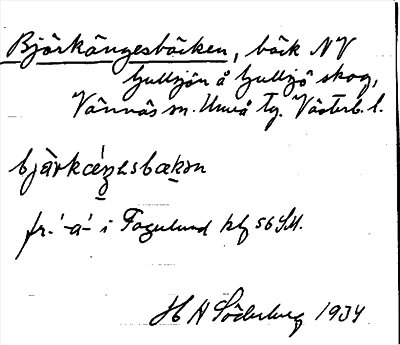 Björkängesbäcken, bäck NV
Gullsjön å Gullsjö skog,
Vännäs sn. Umeå tg. Västerb. l.
bjärkæ̀ŋesbækɘn
fr. -a- i Fagerlund kf 56 SU.
H A Söderberg 1934